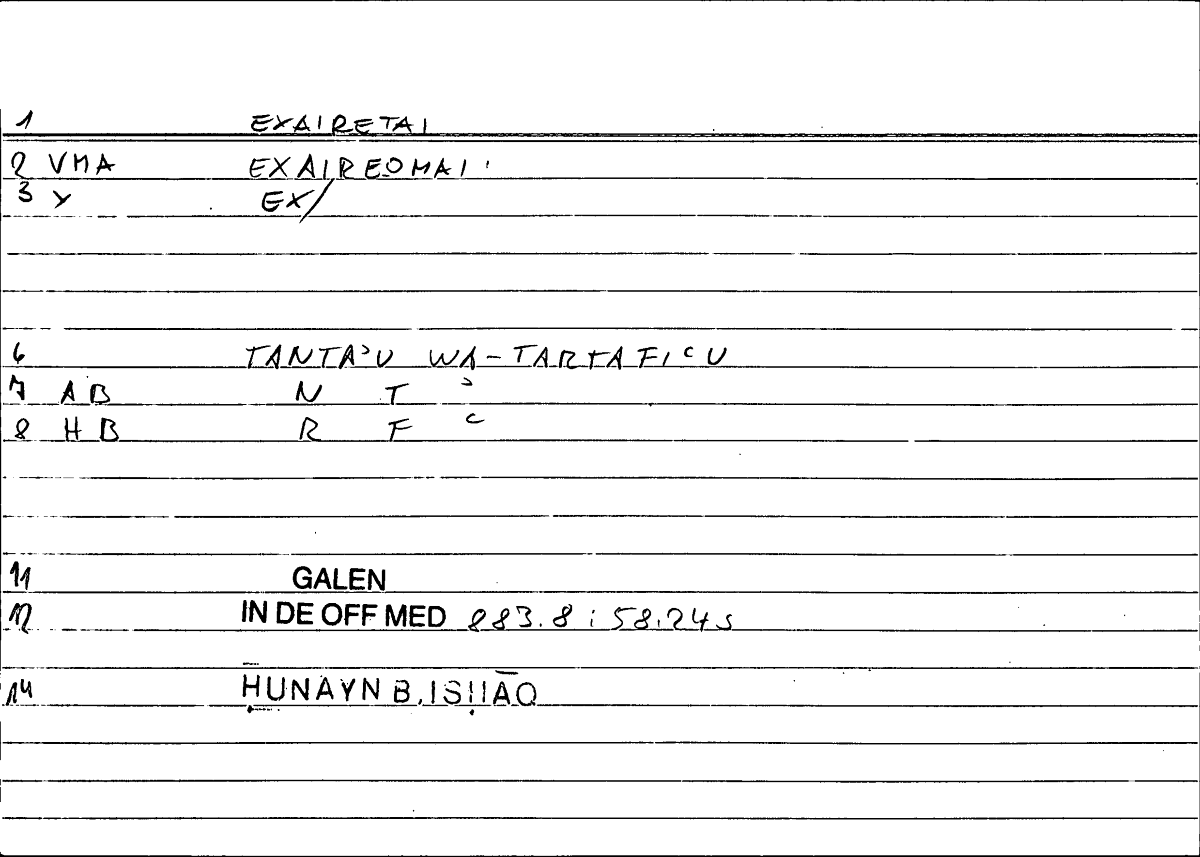 1 EXAIRETAI
2 VMA EXAIREOMAI
3 X EX/
6 TANTAʾU WA-TARTAFIʿU
7 AB N T ʾ
8 HB R F ʿ
11 GALEN
12 IN DE OFF MED 883.8 : 58.24s
14 ḤUNAYN B. ISḤĀQ